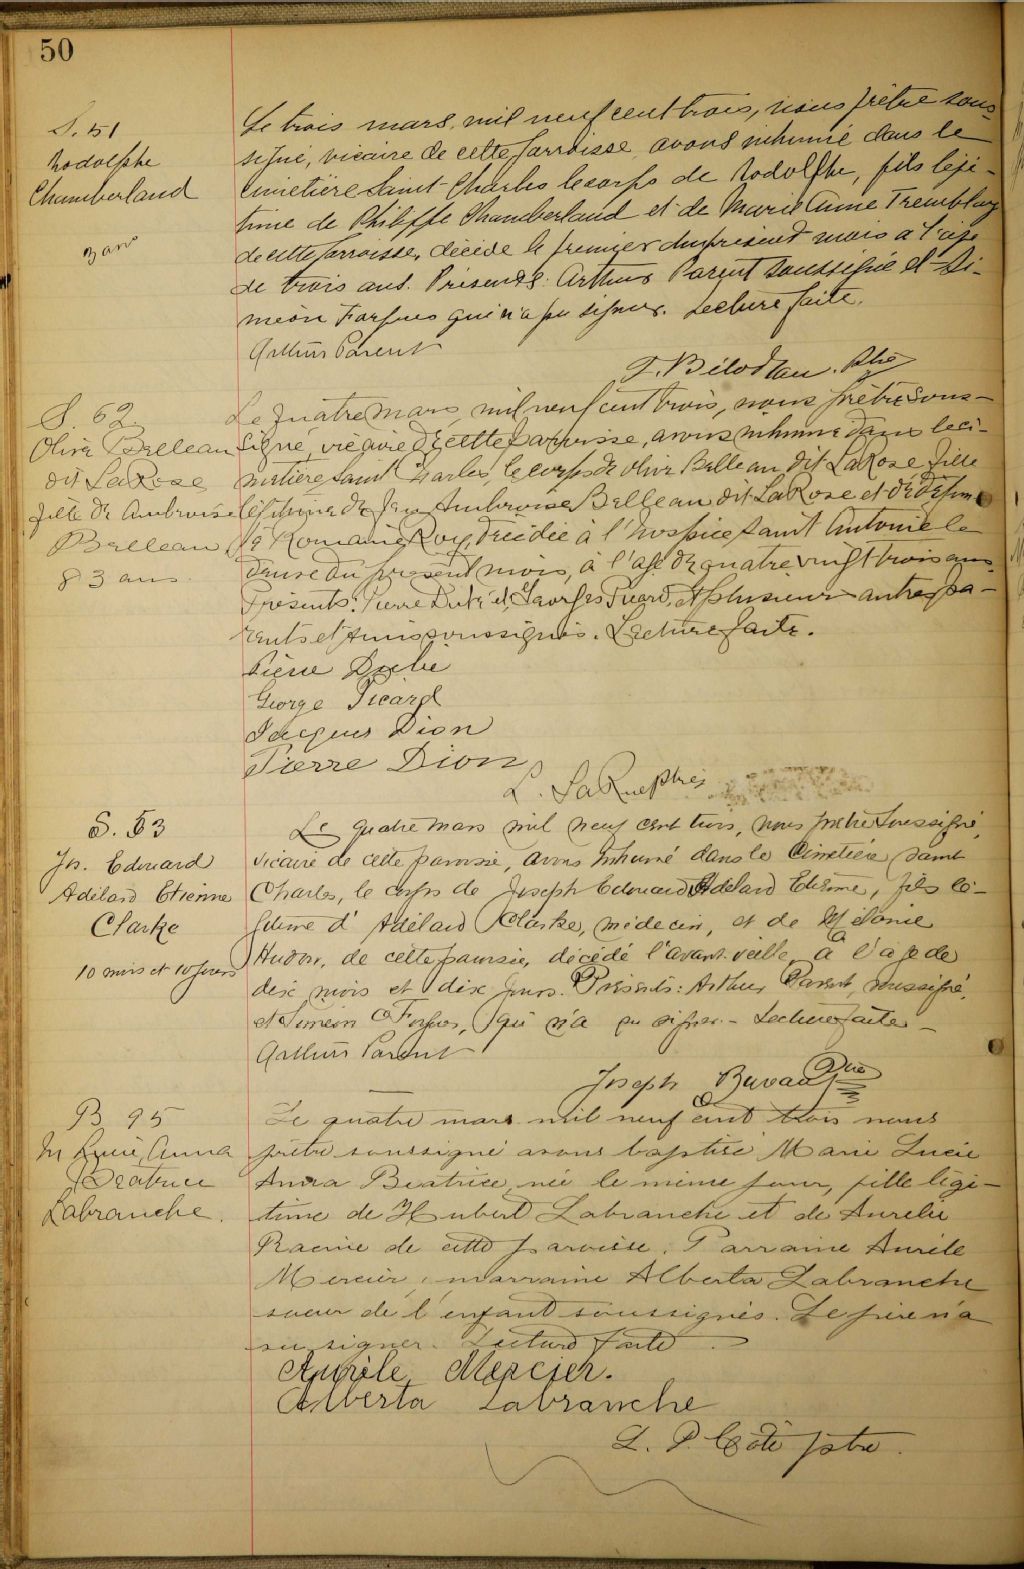 50
S. 51
Rodolphe
Chamberland
3 ans
Le trois mars, mil neuf cent trois, nous prêtre sous-
signé, vicaire de cette parroisse, avons inhumé dans le
cimetière Saint-Charles le corps de Rodolphe, fils légi-
time de Philippe Chamberland et de Marie Anne Tremblay
de cette parroisse, décédé le premier du présent mois à l'age
de trois ans. Présents: Arthur Parent soussigné et Si-
méon Fargues qui n'a pu signer. Lecture faite.
Arthur Parent
T. Bilodeau. Ptre
S. 52
Olive Belleau
dit LaRose
fille de Ambroise
Belleau
83 ans
Le quatre mars, mil neuf cent trois, nous prêtre sous-
signé, vicaire de cette Paroisse, avons inhumé dans le ci-
metière Saint Charles, le corps de Olive Belleau dit LaRose fille
légitime de feu Ambroise Belleau dit LaRose et de défun-
te Romaine Roy, décédée à l'hospice Saint Antoine le
deux du présent mois, à l'age de quatre vingt trois ans.
Présents: Pierre Dubé et Georges Picard, et plusieurs autres pa-
rents et amis soussignés. Lecture faite.
Pierre Dubé
George Picard
Jacques Dion
Pierre Dion
L. LaRue ptre
S. 53
Jos. Edouard
Adélard Etienne
Clarke
10 mois et 10 jours
Le quatre mars mil neuf cent trois, nous prêtre soussigné,
vicaire de cette paroisse, avons inhumé dans le cimetière Saint
Charles, le corps de Joseph Edouard Adélard Etienne, fils lé-
gitime d'Adélard Clarke, médecin, et de Mélanie
Hudon, de cette paroisse, décédé l'avant-veille, à l'age de
dix mois et dix jours. Présents: Arthur Parent, soussigné,
et Siméon Fargues, qui n'a pu signer. - Lecture faite -
Arthur Parent
Joseph Ptre
B 95
M Lucie Anna
Béatrice
Labranche.
Le quatre mars mil neuf cent trois nous
prêtre soussigné avons baptisé Marie Lucie
Anna Béatrice, née le même jour, fille légi-
time de Hubert Labranche et de Aurélie
Racine de cette paroisse. Parrain Aurèle
Mercier, marraine Alberta Labranche
soeur de l'enfant soussignés. Le père n'a
su signer. Lecture faite.
Aurèle Mercier.
Alberta Labranche
L. P. Côté ptre.